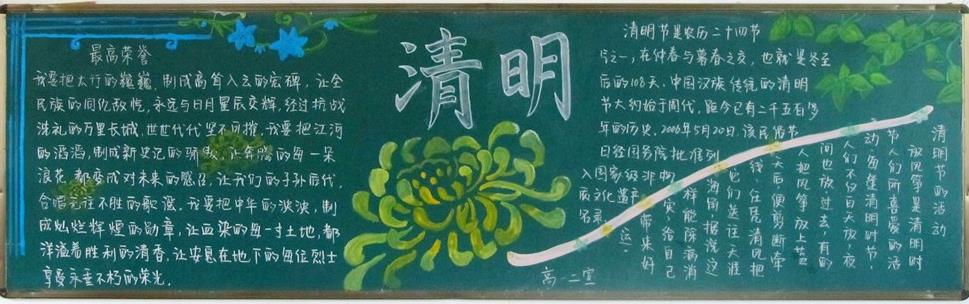 最高荣誉
我要把太行的巍巍,制成高耸入云的宏碑,让全
民族的同仇敌忾,永远与日月星辰交辉,经过抗战
洗礼的万里长城,世世代代坚不可摧,我要把江河
的滔滔,制成新史记的骄傲,让奔腾的每一朵
浪花,都变成对未来的感召,让我们的子孙后代,
合唱无往不胜的歌谣,我要把中华的泱泱,制
成灿烂辉煌的勋章,让血染的每一寸土地,都
洋溢着胜利的清香,让安息在地下的每位烈士
享受永垂不朽的荣光.
清明
清明节是农历二十四节
气之一,在仲春与暮春之交,也就是冬至
后的108天.中国汉族传统的清明
节大约始于周代,距今已有二千五百多
年的历史,2006年5月20日,该民俗节
日经国务院批准列
入国家级非物
质文化遗产
名录.
清明节的活动
放风筝是清明时
节人们所喜爱的活
动,每逢清明时节,
人们不仅白天放,夜
间也放过去,有的
人把风筝放上蓝
天后,便剪断牵
线,任凭清风把
它们送往天涯
海角,据说这
样能除病消
灾,给自己
带来好
运.
高一二宣